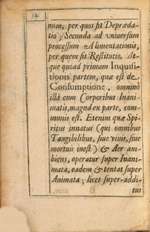 nuum, per quos fit Deprædatio; Secunda ad vniuersum
processum Alimentationis,
per quem fit Restitutio. Atque quoad primam Inquisitionis partem, quæ est de
Consumptione, omninò
illa cum Corporibus Inanimatis, magnâ ex parte, communis est. Etenim quæ Spiritus innatus (qui omnibus
Tangibilibus, siue viuis, siue
mortuis inest) & Aer ambiens, operatur super Inanimata, eadem & tentat super
Animata; licet super-additus